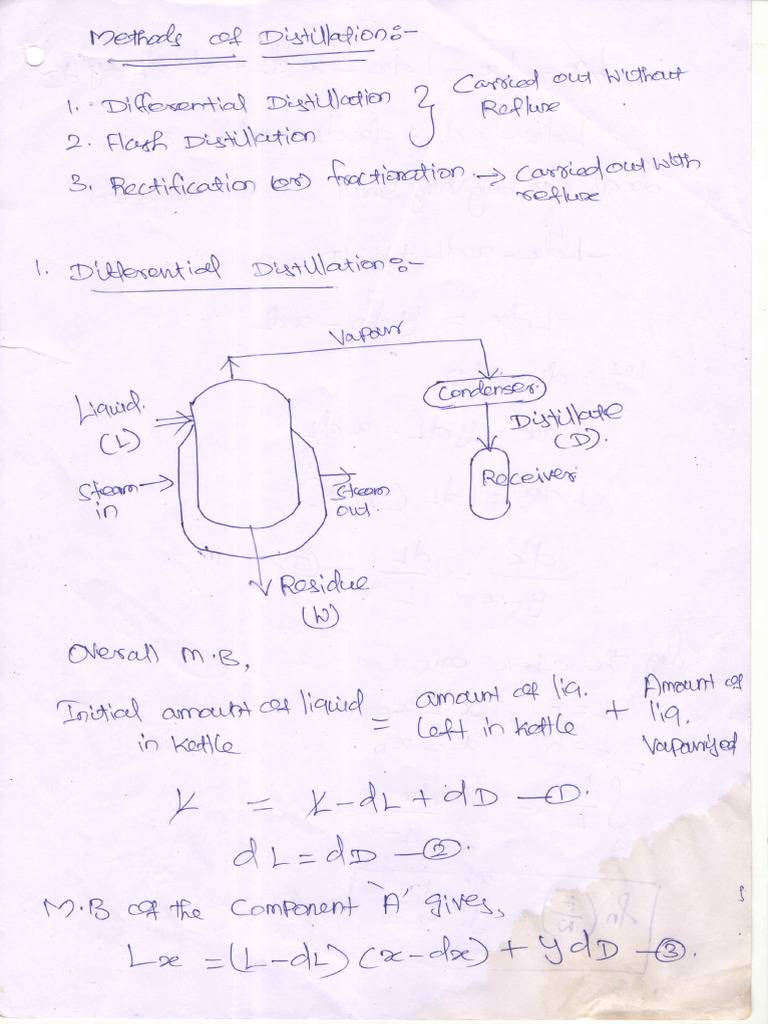 Methods of Distillation:-
1. Differential Distillation
2. Flash Distillation
} Carried out Without
Reflux
3. Rectification (or) fractionation → Carried out With
reflux
1. Differential Distillation:-
Vapour
Condenser
Liquid
(L)
Distillate
(D).
Steam
in
Steam
out.
Receiver
Residue
(W)
Overall M.B,
Initial amount of liquid
in kettle
=
amount of liq.
left in kettle
+
Amount of
liq.
Vaporised
L = L-dL + dD — ①.
dL = dD — ②.
M.B of the Component 'A' gives,
Lx = (L-dL) (x-dx) + ydD — ③.